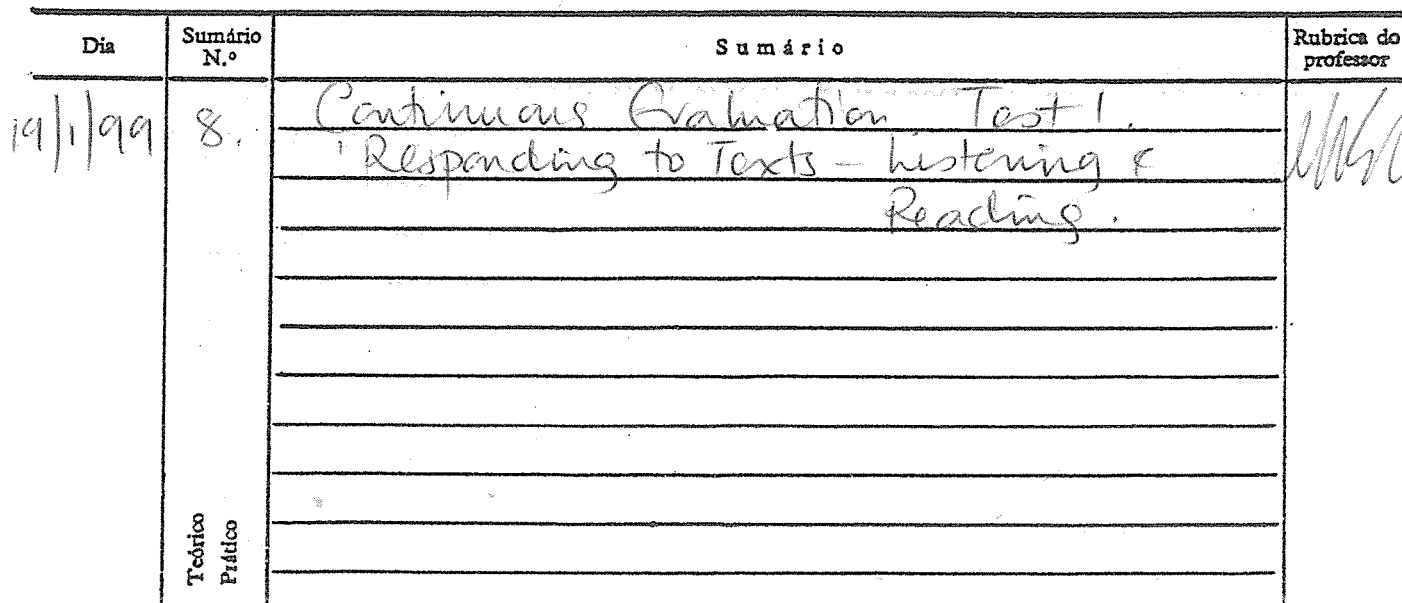 Dia
Sumário
N.º
Sumário
Rubrica do
professor
19/1/99
8.
Continuous Evaluation Test 1.
Responding to Texts - Listening &
Reading.
Teórico
Prático